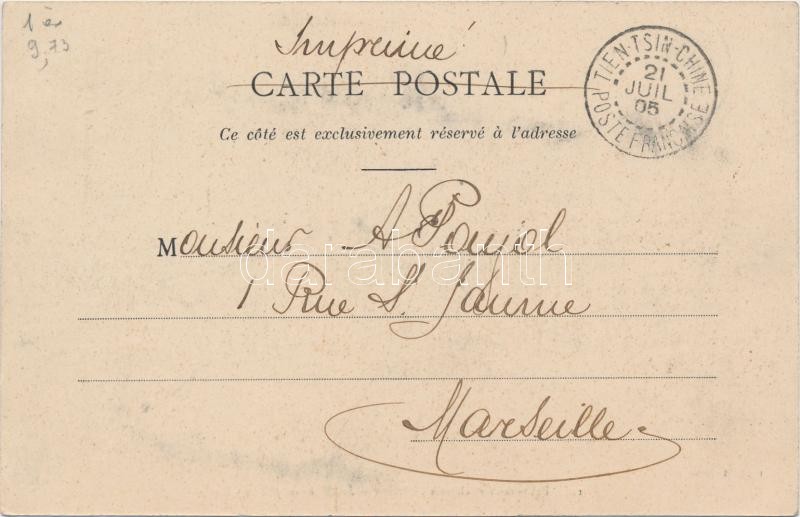 1 è
9,73
Imprimé
CARTE POSTALE
TIEN-TSIN-CHINE
21
JUIL
05
POSTE FRANÇAISE
Ce côté est exclusivement réservé à l'adresse
Monsieur A Poujol
darabanth
1 Rue St. Jaume
Marseille